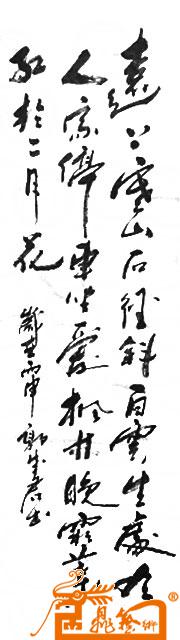 远上寒山石径斜白云生处有
人家停车坐爱枫林晚霜叶
红於二月花
岁在丙申